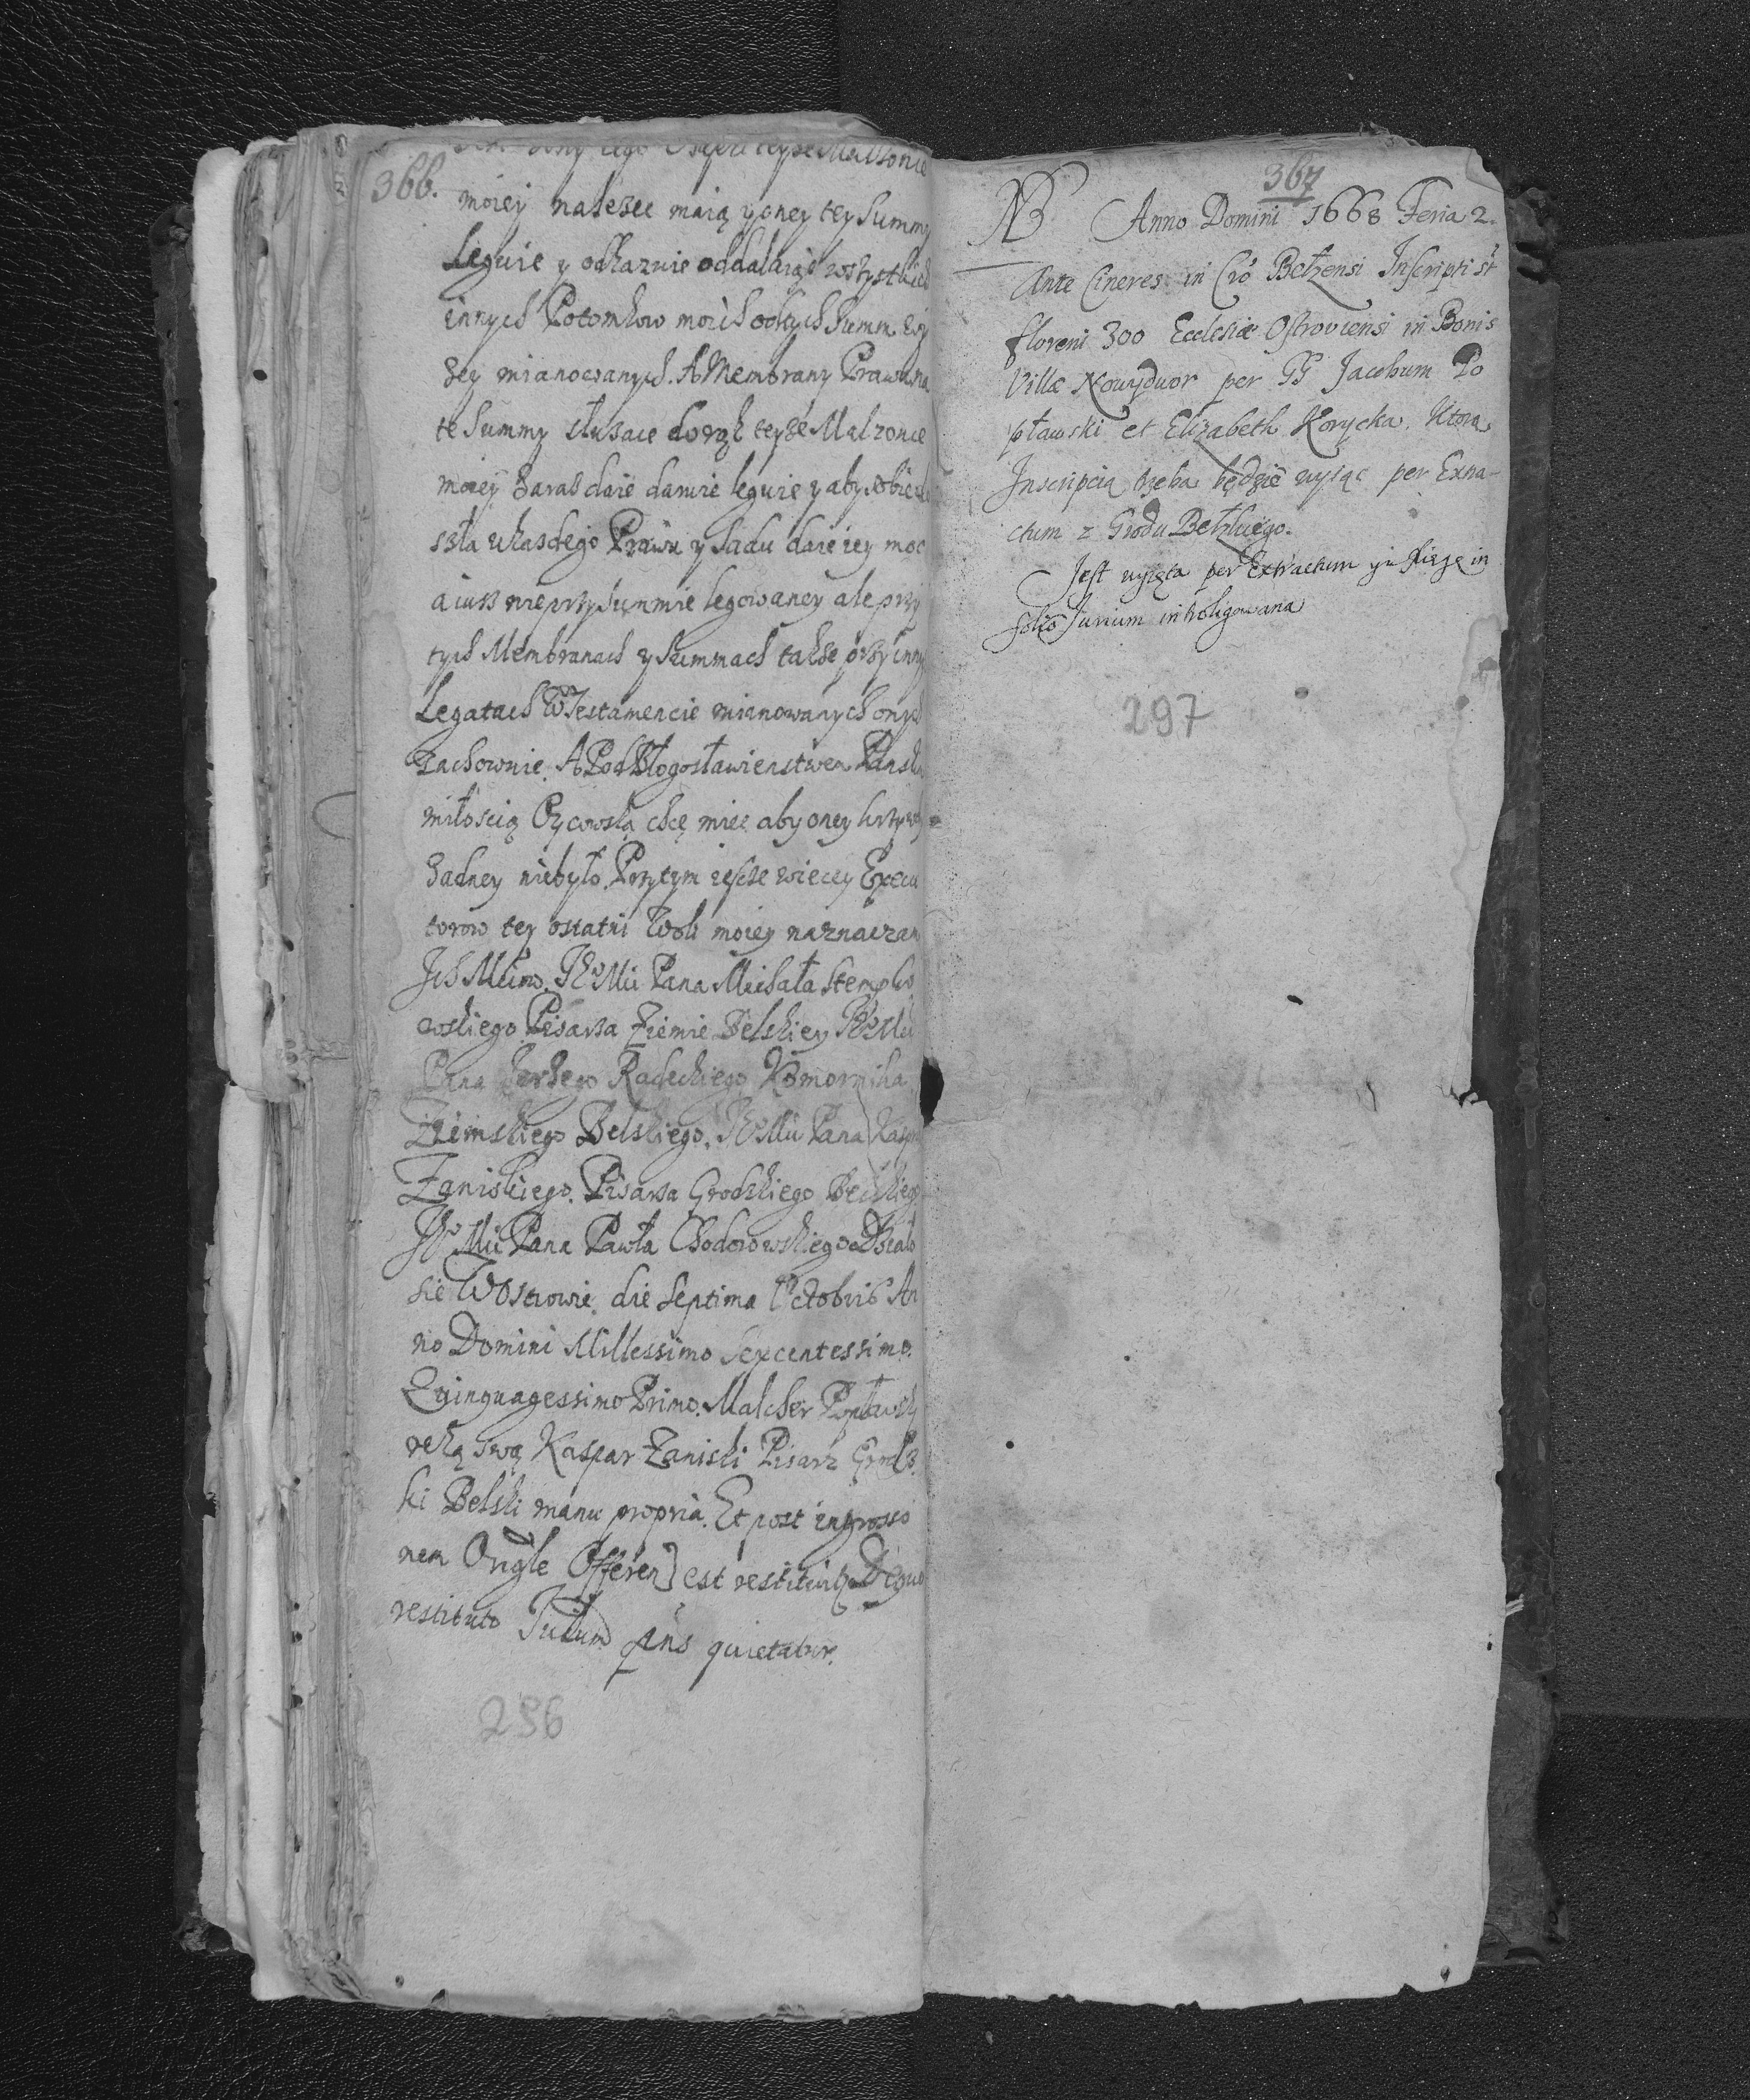 366.
teyże Małzonce
moiey należec maią y oney tey Summy
Leguie y odkazuie oddalaiąc wszystkich
innych Potomkow moich od tych Summ wy
zey mianowanych. A Membrany Prawu na
te Summy słuzace do rąk teyze Malzonce
moiey zaraz daie daruie leguie y aby
szła każdego Prawa y Sądu daie iey moc
a iusz nie przy Summie legowaney ale przy
tych Membranach y Summach takze przy inny
Legatach W Testamencie mianowanych onych
zachownie. A Pod Błogosławienstwem Pansk
miłoscią Oycowską chcę miec aby oney krzywdy
Zadney niebyło. Przytym iescze wiecey Execu
torow tey ostatni Woli moiey naznaczam
Ich Mciow. Pana Michała Stempko
wskiego Pisarza Ziemie Belskiey
Pana Jerzego Radeckiego Komornika
Ziemskiego Belskiego. Pana Kaspra
Zaniskiego. Pisarza Grodzkiego Belskiego
Pana Pawła Chodorowskiego Działo
sie W Ostrowie. die Septima Octobris An
no Domini Millessimo Sexcentessimo.
Quinquagessimo Primo. Malcher Popławsky
ręką swą Kaspar Zaniski Pisarz Grodz
ki Belski manu propria. Et post ingrosso
nem Origle Offeren est restitut De quo
restituto pns quietatur.
296
367
NB Anno Domini 1668 Feria 2.
Ante Cineres in Cro Betzensi Inscripti st
floreni 300 Ecclesiæ Ostroviensi in Bonis
Villæ Nowydwor per GG Jacobum Po
pławski et Elizabeth Korycka. Ktora
Inscripcia trzeba będzie wyiąc per Extra-
ctum z Grodu Betzkiego.
Jest wyięta per Extractum y w Xięgę in
folio Jurium introligowana
297